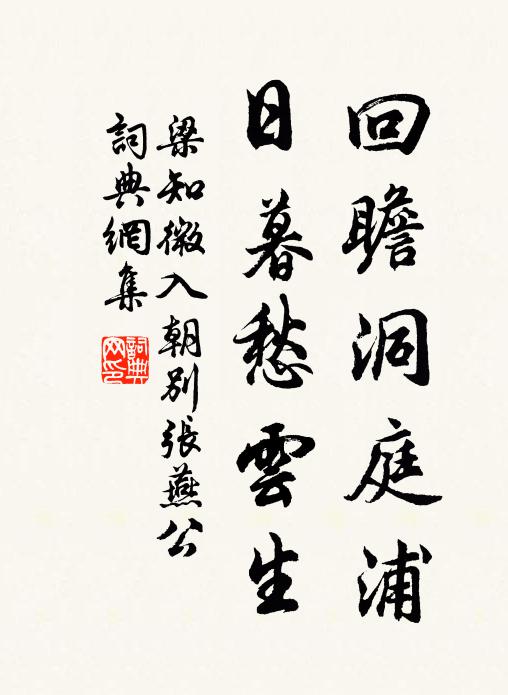 回瞻洞庭浦
日暮愁雲生
梁知微入朝別張燕公
詞典網集
詞典
网印